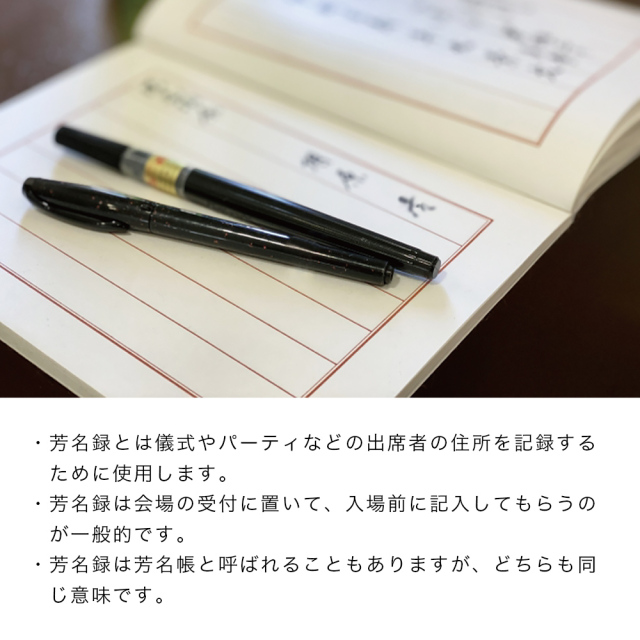 ・芳名録とは儀式やパーティなどの出席者の住所を記録する
ために使用します。
・芳名録は会場の受付に置いて、入場前に記入してもらうの
が一般的です。
・芳名録は芳名帳と呼ばれることもありますが、どちらも同
じ意味です。